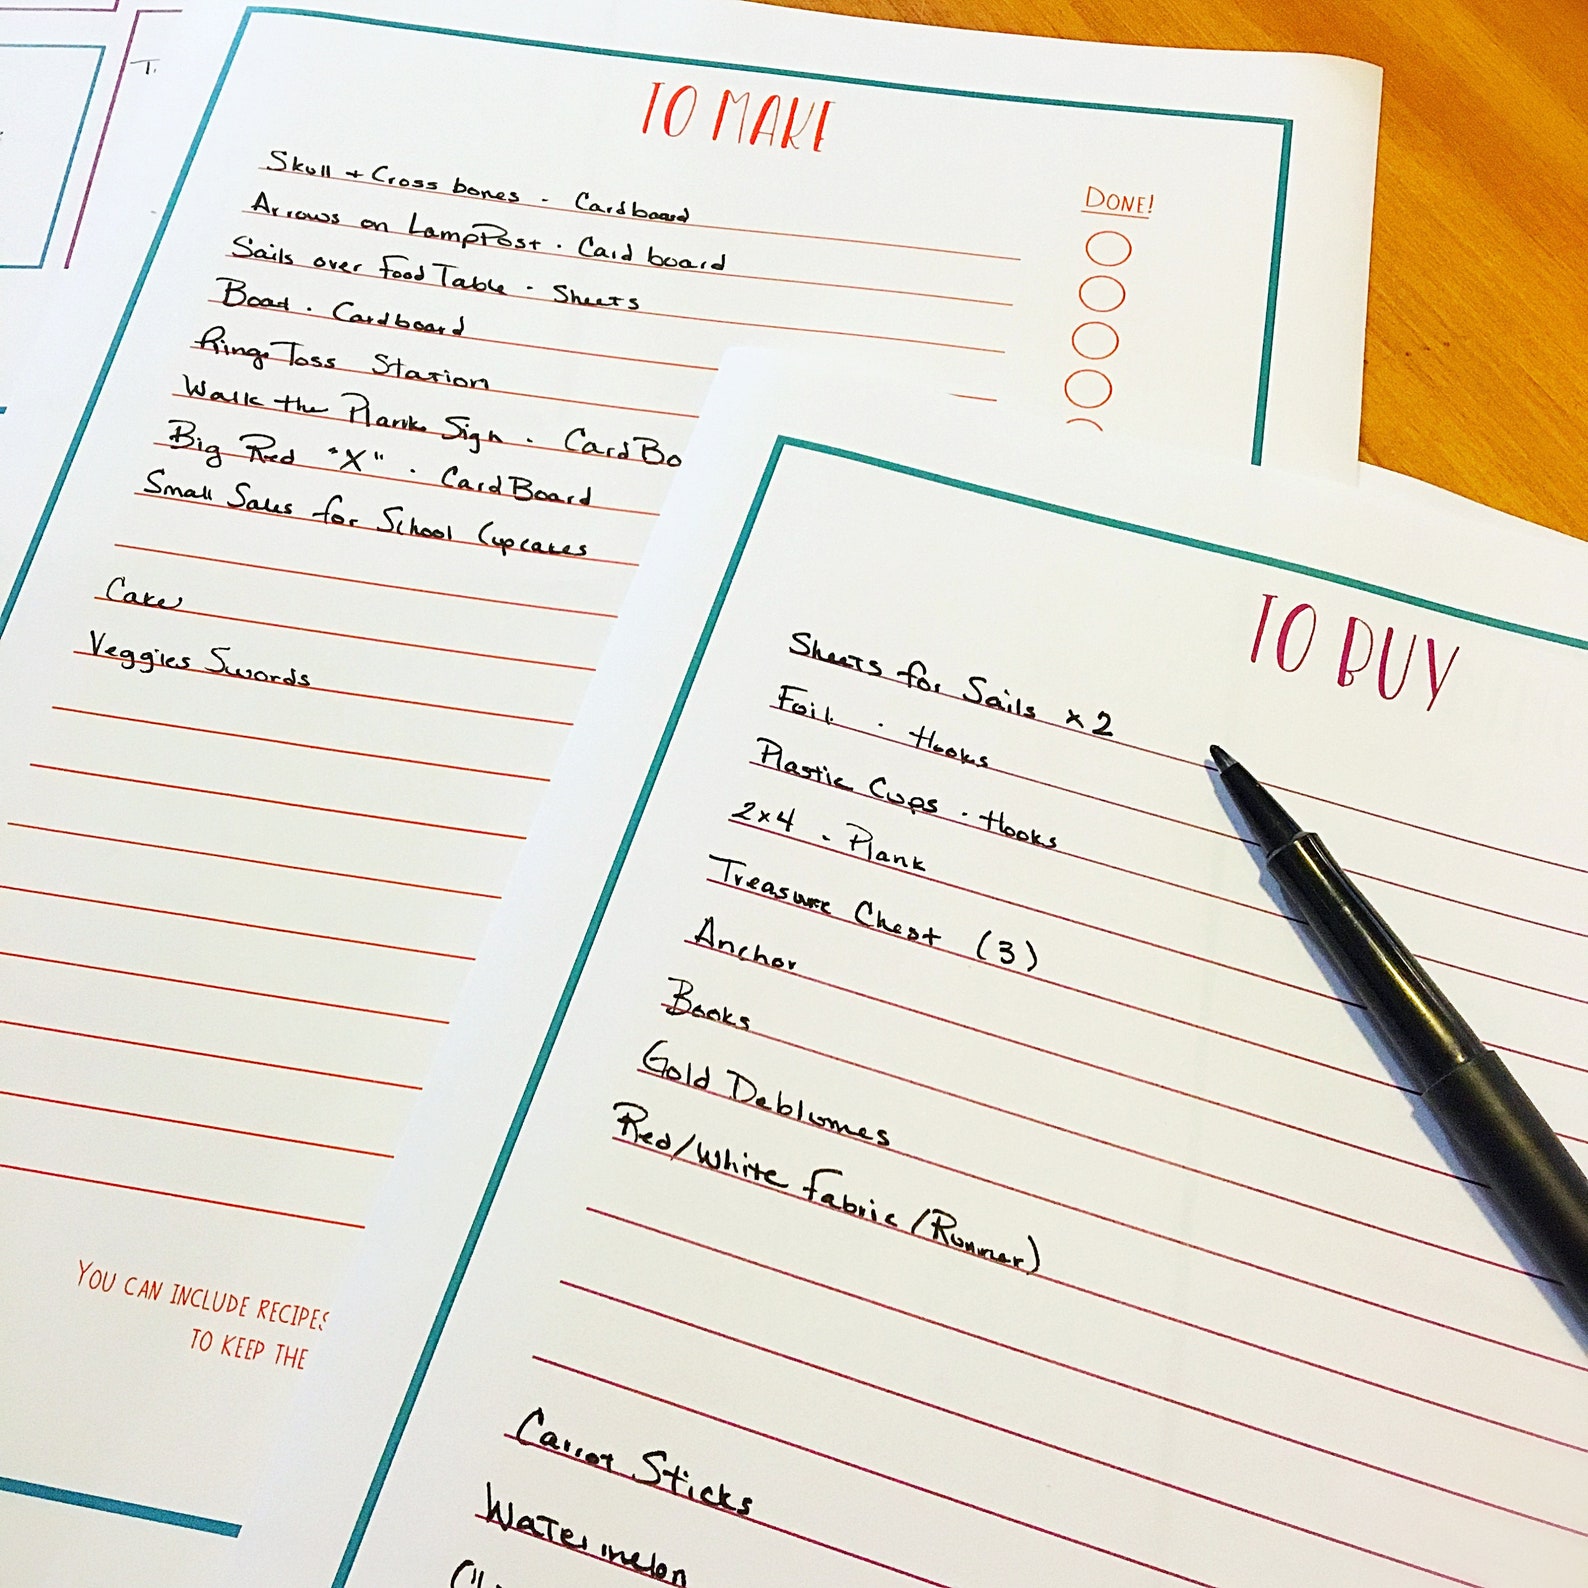 TO MAKE
DONE!
Skull + Cross bones - Cardboard
Arrows on LampPost - Cardboard
Sails over Food Table - Sheets
Boat - Cardboard
Ring Toss Station
Walk the Plank Sign - CardBo
Big Red "X" - CardBoard
Small Sales for School Cupcakes
Cake
Veggies Swords
YOU CAN INCLUDE RECIPES
TO KEEP THE
TO BUY
Sheets for Sails x2
Foil - Hooks
Plastic Cups - Hooks
2x4 - Plank
Treasure Chest (3)
Anchor
Books
Gold Deblumes
Red/White Fabric (Runner)
Carrot Sticks
Watermelon